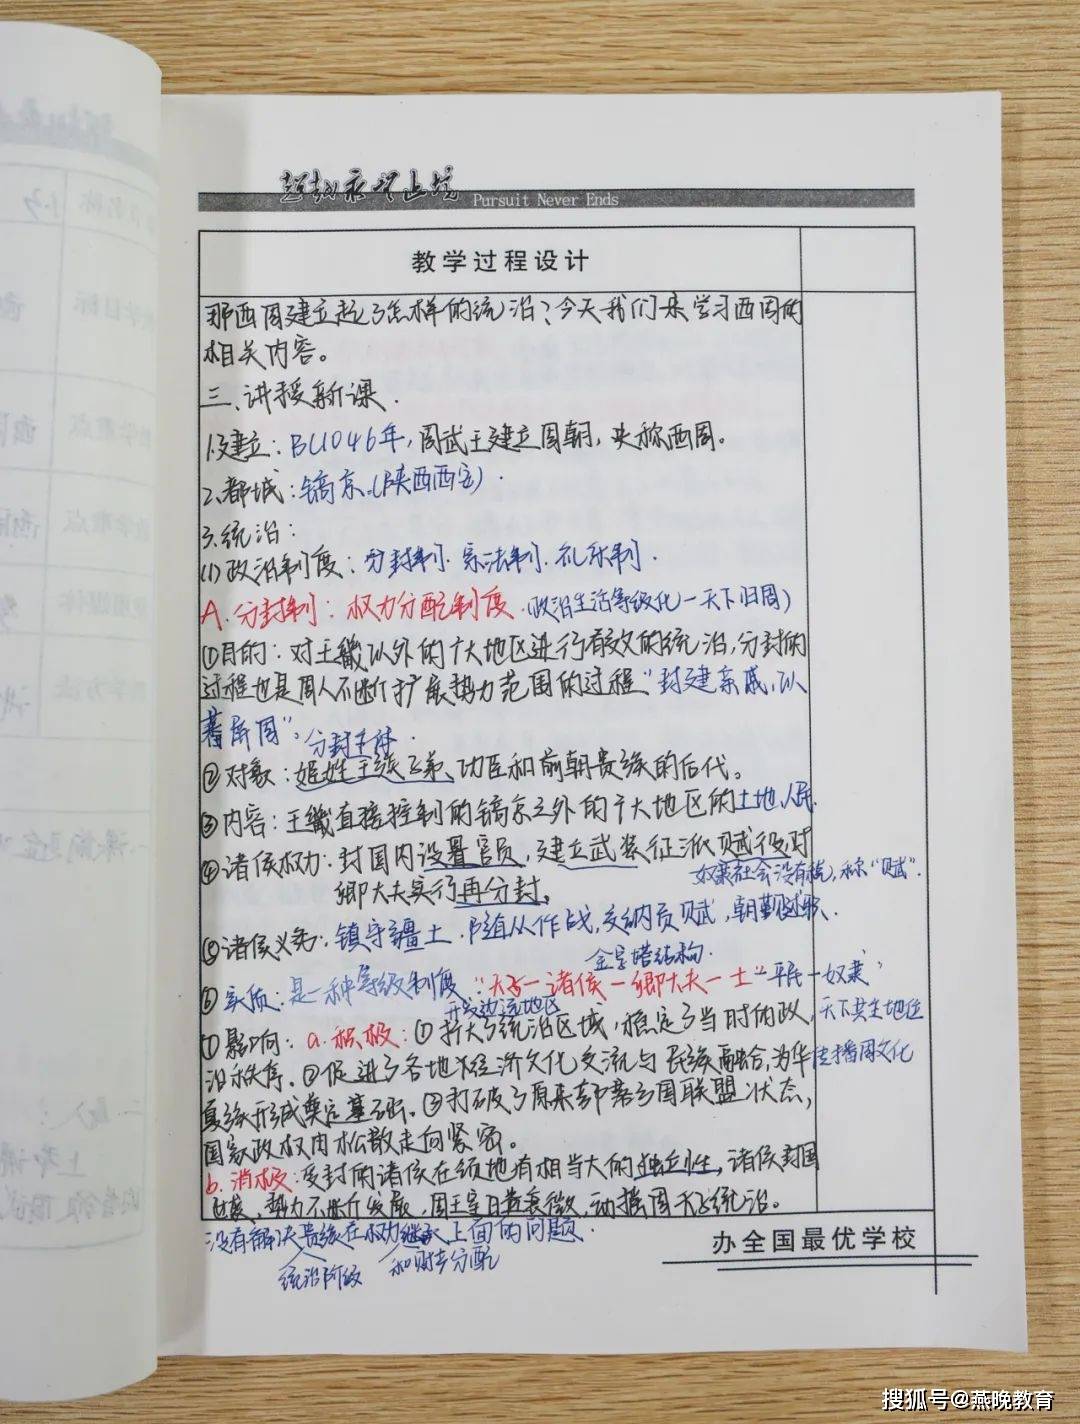 超越永无止境
Pursuit Never Ends
教学过程设计
那西周建立起了怎样的统治？今天我们来学习西周的
相关内容。
三、讲授新课.
1.建立：BC1046年，周武王建立周朝，史称西周。
2.都城：镐京.(陕西西安).
3.统治：
(1)政治制度：分封制.宗法制.礼乐制.
A.分封制：权力分配制度.(政治生活等级化—天下归周)
①目的：对王畿以外的广大地区进行有效的统治,分封的
过程也是周人不断扩展势力范围的过程"封建亲戚,以
蕃屏周"。分封主体.
②对象：姬姓王族子弟、功臣和前朝贵族的后代。
③内容：王畿直接控制的镐京之外的广大地区的土地,人民.
④诸侯权力：封国内设置官员,建立武装征派赋役,对
奴隶社会没有税,称"赋".
卿大夫实行再分封。
⑤诸侯义务：镇守疆土.随从作战,交纳贡赋,朝觐述职.
金字塔结构.
⑥实质：是一种等级制度."天子—诸侯—卿大夫—士"—平民—奴隶
开发边远地区
⑦影响：a.积极：①扩大了统治区域,稳定了当时的政,天下共主地位
治秩序.②促进了各地经济文化交流与民族融合,为华传播周文化
夏族形成奠定基础.③打破了原来部落方国联盟状态,
国家政权由松散走向紧密。
b.消极：受封的诸侯在领地有相当大的独立性,诸侯封国
势力不断发展,周王室日益衰微,动摇周天子统治。
没有解决贵族在权力继承上面的问题.
统治阶级 和财产分配
办全国最优学校
搜狐号@燕晚教育